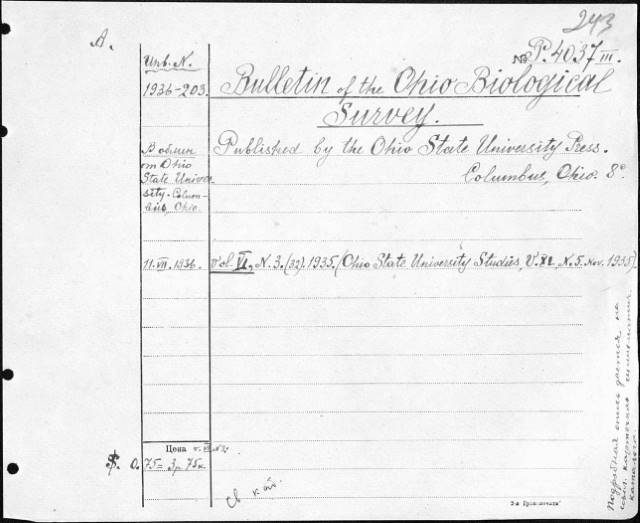 243
А.
№ P. 4037 III.
Инв. N.
1936-203.
Bulletin of the Ohio Biological
Survey.
В обмен
от Ohio
State Univer-
sity. Colum-
bus, Ohio.
Published by the Ohio State University Press.
Columbus, Ohio. 8°
11.VII.1936.
Vol. VI, N. 3. (32). 1935. (Ohio State University Studies, V. XI, N. 5. Nov. 1935)
Цена
$. 0.75 = 3 р. 75 к.
Св кат.
Подробная опись дается на
карточках
каталога